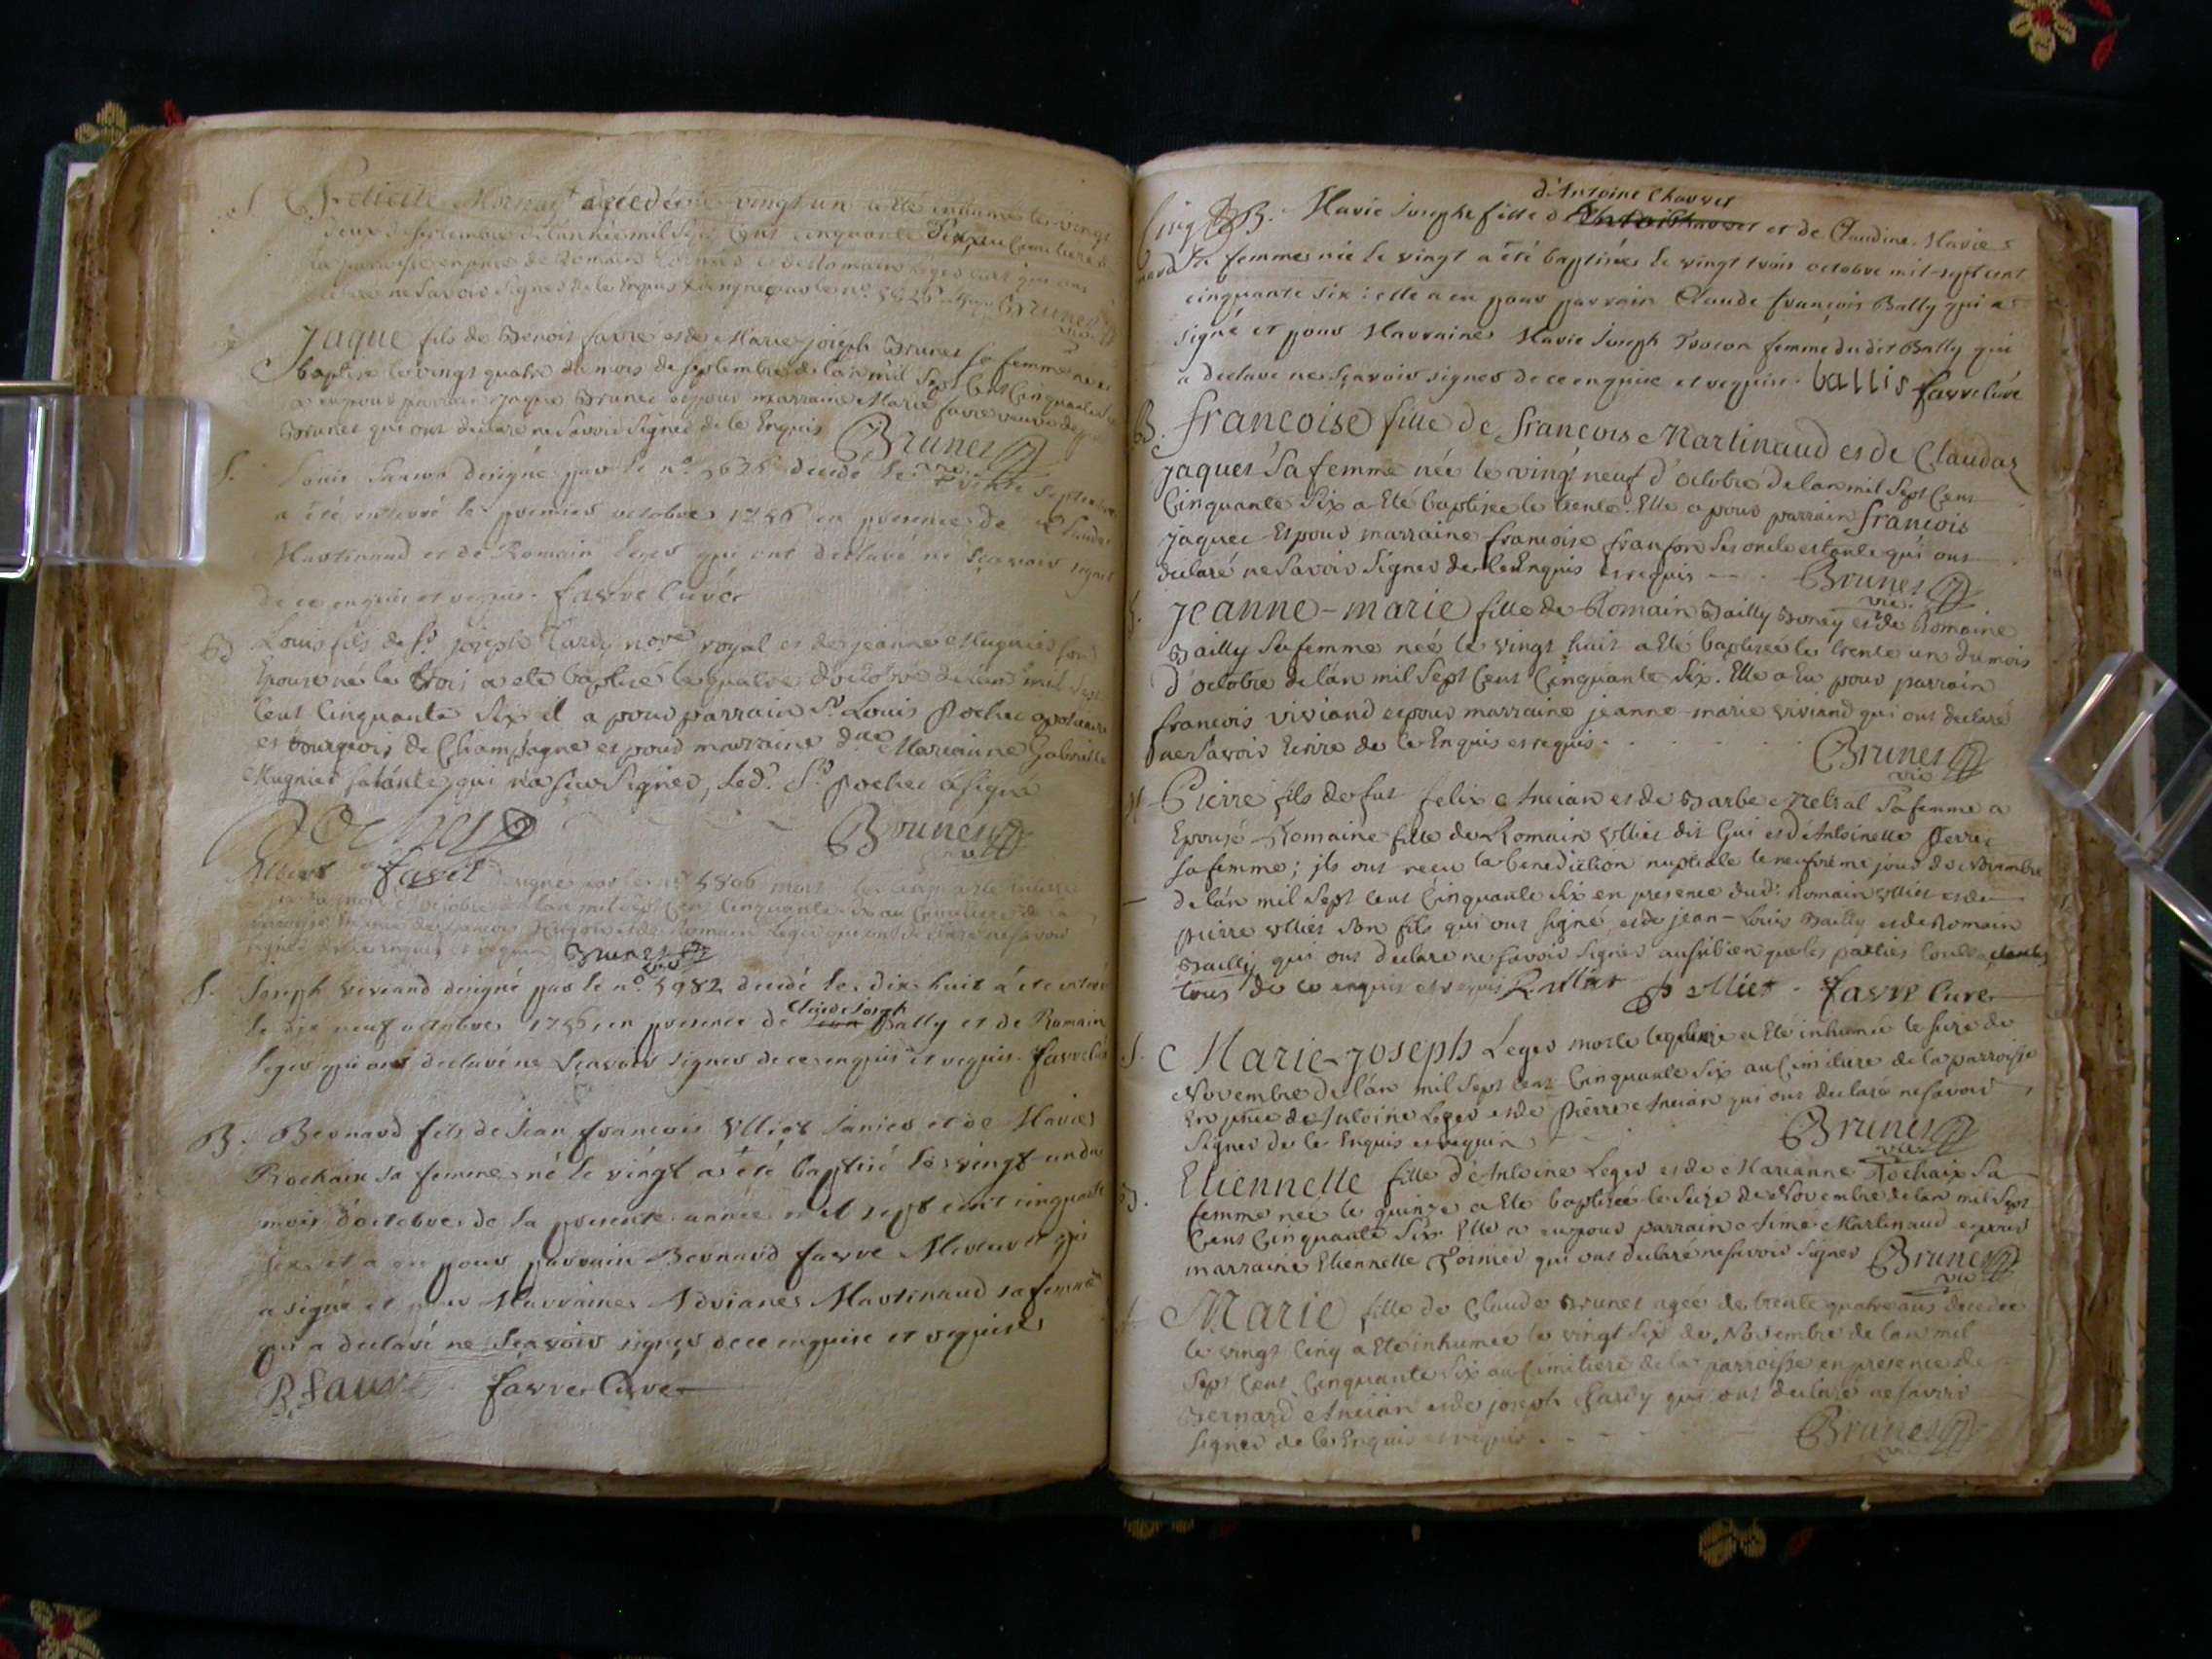 S. Felicité Mornay decedée le vingt un a été inhumé le vingt
deux de septembre de l'année mil sept cent cinquante six au cimetiere de
la paroisse en pnce de Romain et de Romain Leger qui ont
declaré ne savoir signer de ce enquis Brunet
vic
Jaque fils de Benoit favre et de Marie joseph Brunet sa femme né et
baptisé le vingt quatre du mois de septembre de l'an mil sept cent cinquante six
a eu pour parrain jaque Brunet et pour marraine Marie favre veuve de
Brunet qui ont declaré ne savoir signer de ce enquis Brunet
vic
S. Louis designé par le n.º 5635 decedé le trente septembre
a été enterré le premier octobre 1756 en presence de Claude
Martinaud et de Romain Leger qui ont declavé ne sçavoir signer
de ce enquis et requis. favre Curé
B Louis fils de Sr. joseph Tardy no.re royal et de jeanne Mugnier son
Epouse né le trois a eté baptisé le quatre d'octobre de l'an mil sept
Cent Cinquante Six il a pour parrain Sr. Louis Pochet
et bourgeois de Champagne et pour marraine d.lle Marianne Gabrielle
Mugnier sa tante, qui n'a sceu signer, led. Sr. Pochet a signé
Pochet Brunet
vic
Albert favre designé par le n.º 5806 mort
octobre de l'an mil sept cent cinquante six au Cimetiere de la
paroisse en pnce de et de Romain Leger qui ont declaré ne savoir
signer de ce enquis et requis Brunet
vic
S. Joseph Viviand designé par le n.º 5982 decedé le dix huit a été enterré
le dix neuf octobre 1756, en presence de Claude Joseph Bally et de Romain
Leger qui ont declavé ne sçavoir signer de ce enquis et requis. favre Curé
B. Bernard fils de Jean francois Ulliet Janier et de Marie
Rochaix sa femme né le vingt a été baptisé le vingt un du
mois d'octobre de la presente année mil sept cent cinquante
six, et a eu pour parrain Bernard favre qui
a signé et pour Marraine Adriane Martinaud sa femme
qui a declavé ne sçavoir signer de ce enquise et requise
B. faure favre Curé
d'Antoine Chauvet
B. Marie Josephe fille d et de Claudine Marie
sa femme née le vingt a été baptisée le vingt trois octobre mil sept cent
cinquante six : elle a eu pour parrain Claude françois Bally qui a
signé et pour Marraine Marie Joseph femme du dit Bally qui
a declavé ne sçavoir signer de ce enquise et requise. ballis favre Curé
B. francoise fille de francois Martinaud et de Claudaz
jaquet sa femme née le vingt neuf d'octobre de l'an mil Sept Cent
Cinquante Six a Eté baptisée le trente. Elle a pour parrain francois
jaquet Et pour marraine francoise franson ses oncle et tante qui ont
declaré ne Savoir Signer de ce Enquis et requis - - - Brunet
vic.
B. jeanne-marie fille de Romain Bailly Boney et de Romaine
Bailly Sa femme née le vingt huit a Eté baptisée le trente un du mois
d'octobre de l'an mil Sept Cent Cinquante Six. Elle a Eu pour parrain
francois viviand et pour marraine jeanne-marie viviand qui ont declaré
ne Savoir Ecrire de ce Enquis et requis - Brunet
vic
M Pierre fils de fut felix Ancian et de Barbe Netral Sa femme a
Epousé Romaine fille de Romain Ulliet dit Gui et d'Antoinette Perret
sa femme; ils ont receu la benediction nuptiale le neufvieme jour de Novembre
de l'an mil Sept Cent Cinquante Six en presence dud. Romain Ulliet et de
pierre Ulliet Son fils qui ont signé et de jean-Louis Bailly et de Romain
Bailly qui ont declaré ne savoir Signer aussi bien que les parties contractantes
tous de ce enquis et requis R ulliet P ulliet. favre Curé
S. Marie-joseph Leger morte le quinze a Eté inhumée le seize de
Novembre de l'an mil Sept Cent Cinquante Six au Cimitiere de la parroisse
En pnce d'Antoine Leger et de Pierre Ancian qui ont declaré ne savoir
Signer de ce Enquis et requis Brunet
vic
B. Etiennette fille d'Antoine Leger et de Marianne Rochaix Sa
femme née le quinze a Eté baptisée le Seize de Novembre de l'an mil Sept
Cent Cinquante Six Elle a eu pour parrain Aimé Martinaud et pour
marraine Etiennette Fornier qui ont declaré ne savoir Signer Brunet
vic
S. Marie fille de Claude Brunet agée de trente quatre ans decedée
le vingt Cinq a Eté inhumée le vingt Six de Novembre de l'an mil
Sept Cent Cinquante Six au Cimitiere de la parroisse en presence de
Bernard Ancian et de joseph Chardy qui ont declaré ne savoir
Signer de ce Enquis et requis. - Brunet
vic